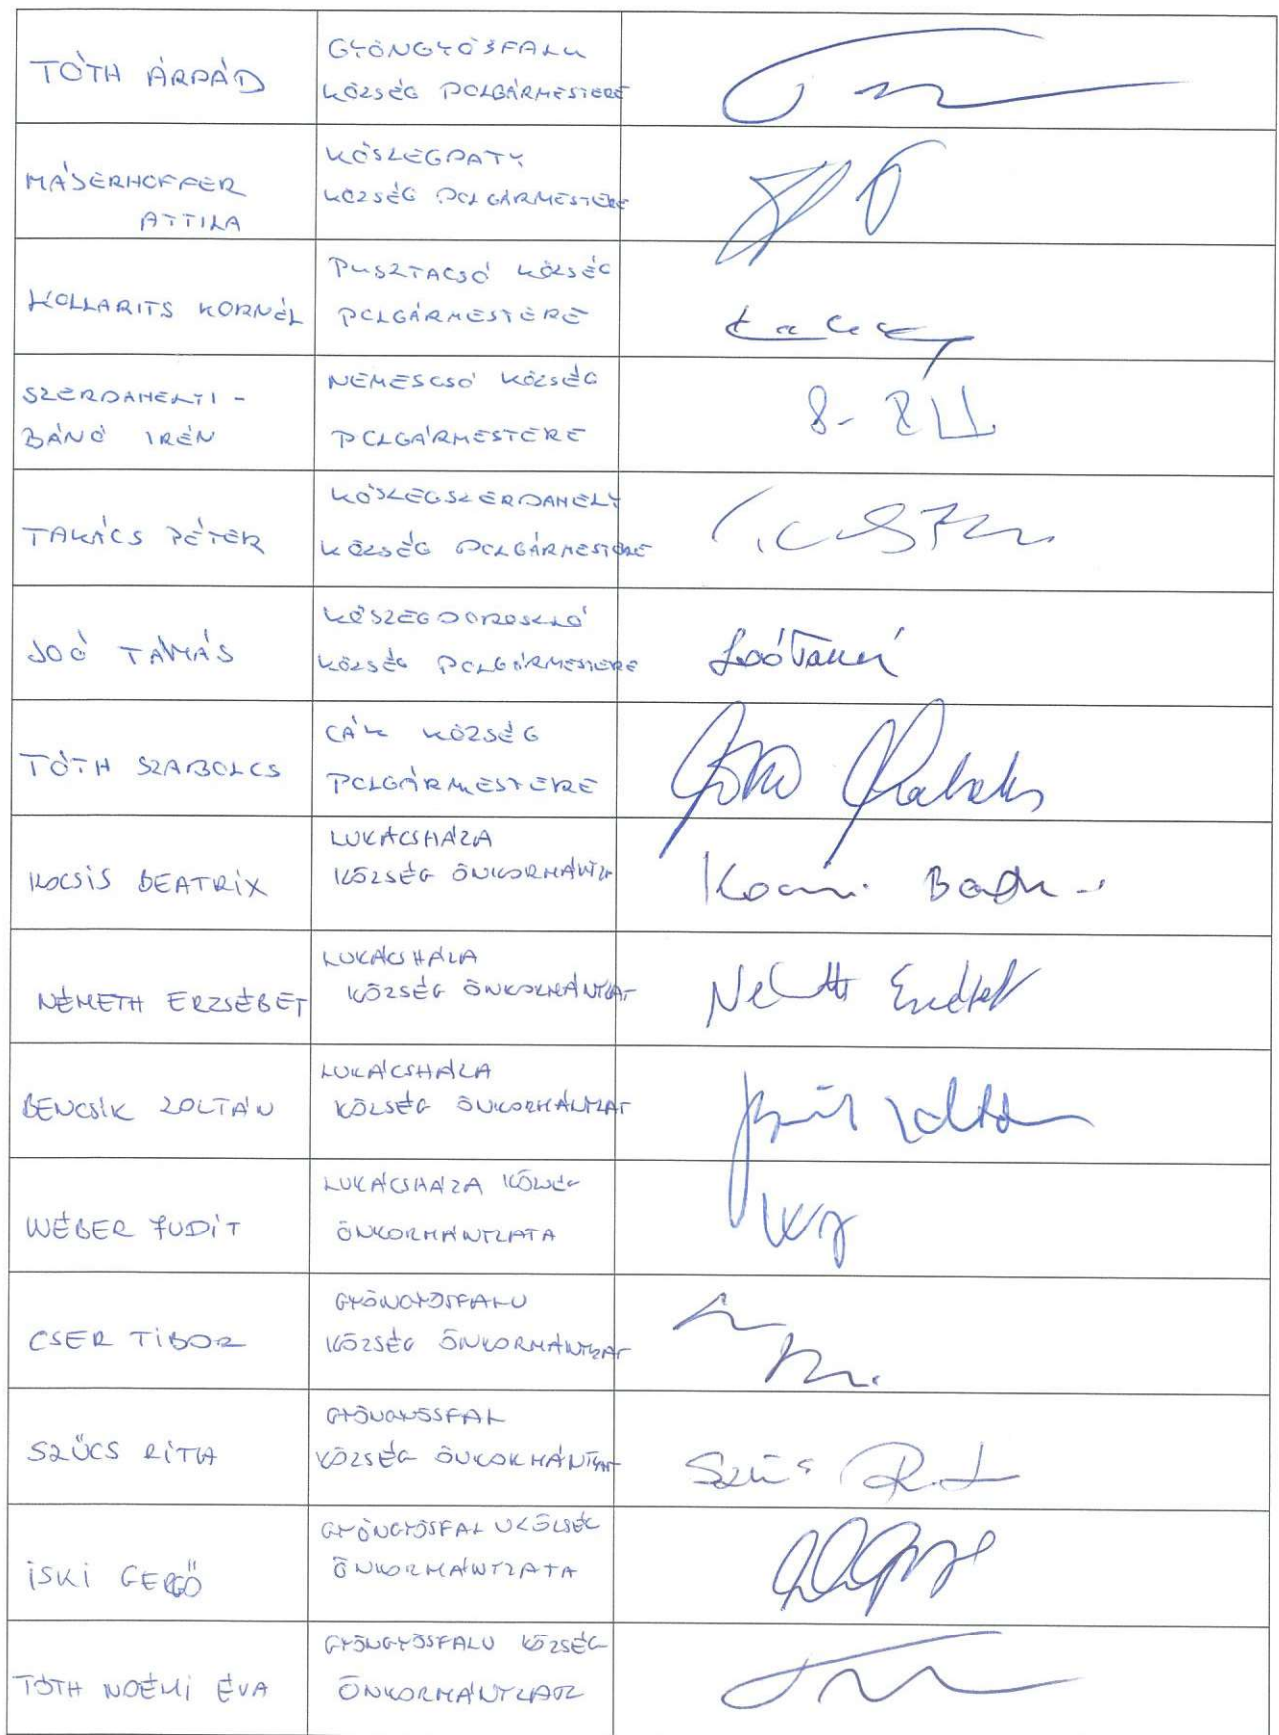 TÓTH ÁRPÁD
GYÖNGYÖSFALU
KÖZSÉG POLGÁRMESTERE
MÁJERHOFFER
ATTILA
KŐSZEGPATY
KÖZSÉG POLGÁRMESTERE
KOLLARITS KORNÉL
PUSZTACSÓ KÖZSÉG
POLGÁRMESTERE
SZERDAHELYI -
BÁNÓ IRÉN
NEMESCSÓ KÖZSÉG
POLGÁRMESTERE
TAKÁCS PÉTER
KŐSZEGSZERDAHELY
KÖZSÉG POLGÁRMESTERE
JOÓ TAMÁS
KŐSZEGDOROSZLÓ
KÖZSÉG POLGÁRMESTERE
Joó Tamás
TÓTH SZABOLCS
CÁK KÖZSÉG
POLGÁRMESTERE
Tóth Szabolcs
KOCSIS BEATRIX
LUKÁCSHÁZA
KÖZSÉG ÖNKORMÁNYZ
Kocsis
NÉMETH ERZSÉBET
LUKÁCSHÁZA
KÖZSÉG ÖNKORMÁNYZAT
Németh Erzsébet
BENCSIK ZOLTÁN
LUKÁCSHÁZA
KÖZSÉG ÖNKORMÁNYZAT
WÉBER JUDIT
LUKÁCSHÁZA KÖZSÉG
ÖNKORMÁNYZATA
CSER TIBOR
GYÖNGYÖSFALU
KÖZSÉG ÖNKORMÁNYZAT
SZŰCS RITA
GYÖNGYÖSFAL
KÖZSÉG ÖNKORMÁNYZAT
Szűcs Rita
ISKI GERGŐ
GYÖNGYÖSFALU KÖZSÉG
ÖNKORMÁNYZATA
TÓTH NOÉMI ÉVA
GYÖNGYÖSFALU KÖZSÉG
ÖNKORMÁNYZAT